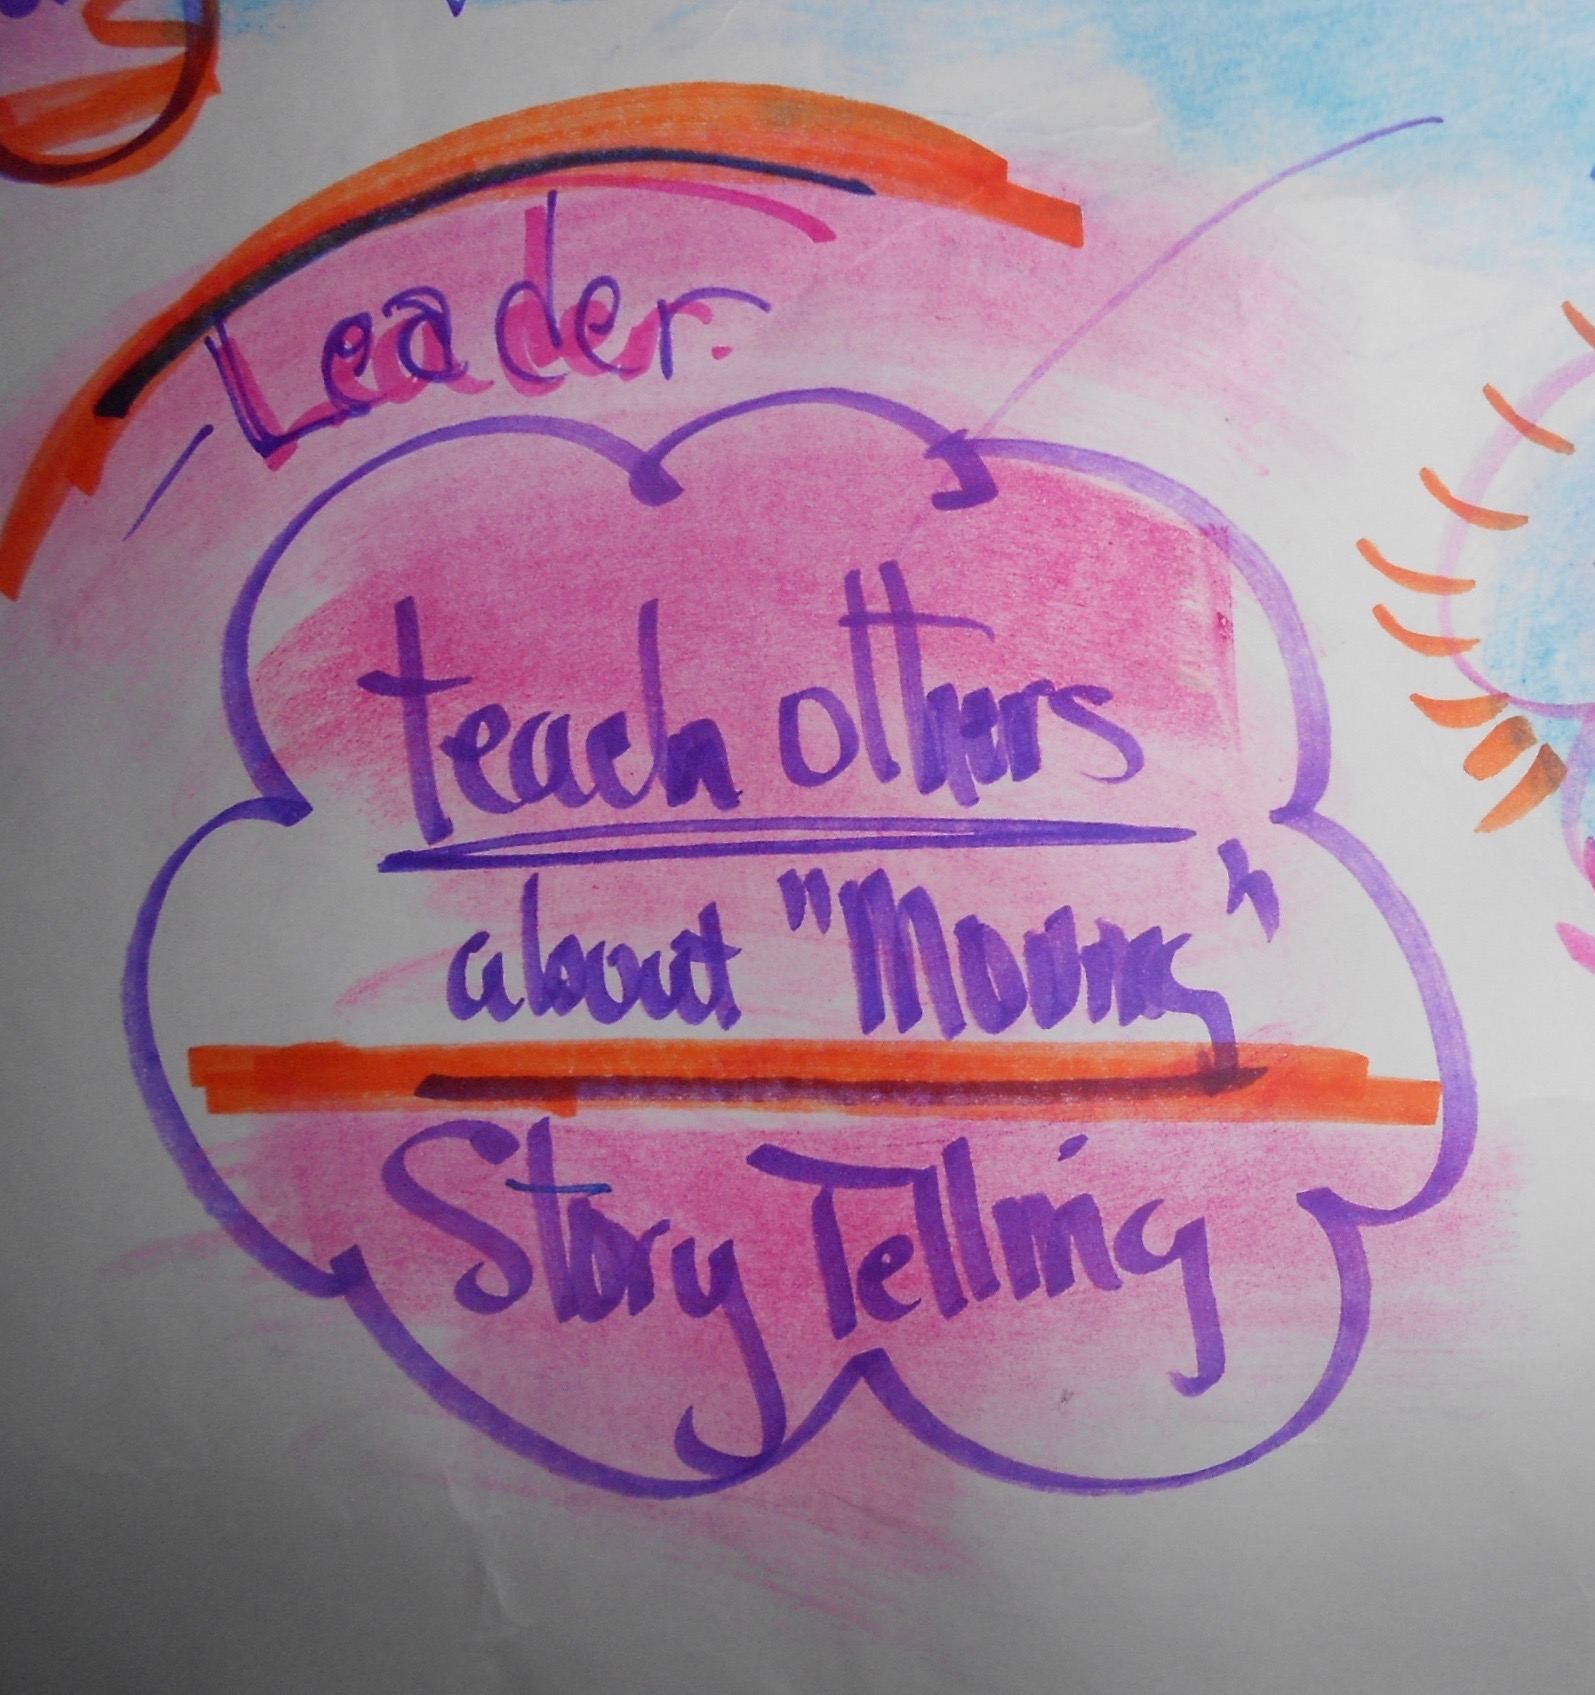 Leader.
teach others
about "Moving"
Story Telling